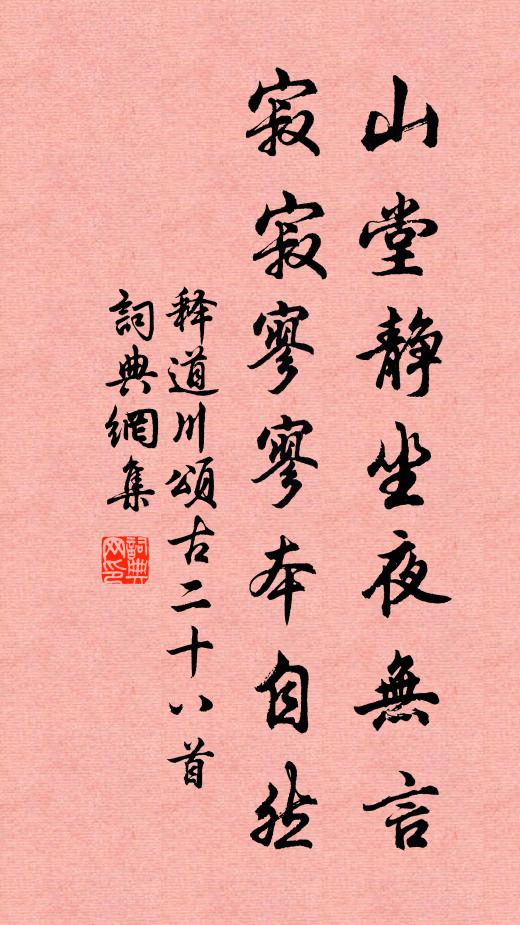 山堂静坐夜無言
寂寂寥寥本自然
释道川頌古二十八首
詞典網集
詞典网印